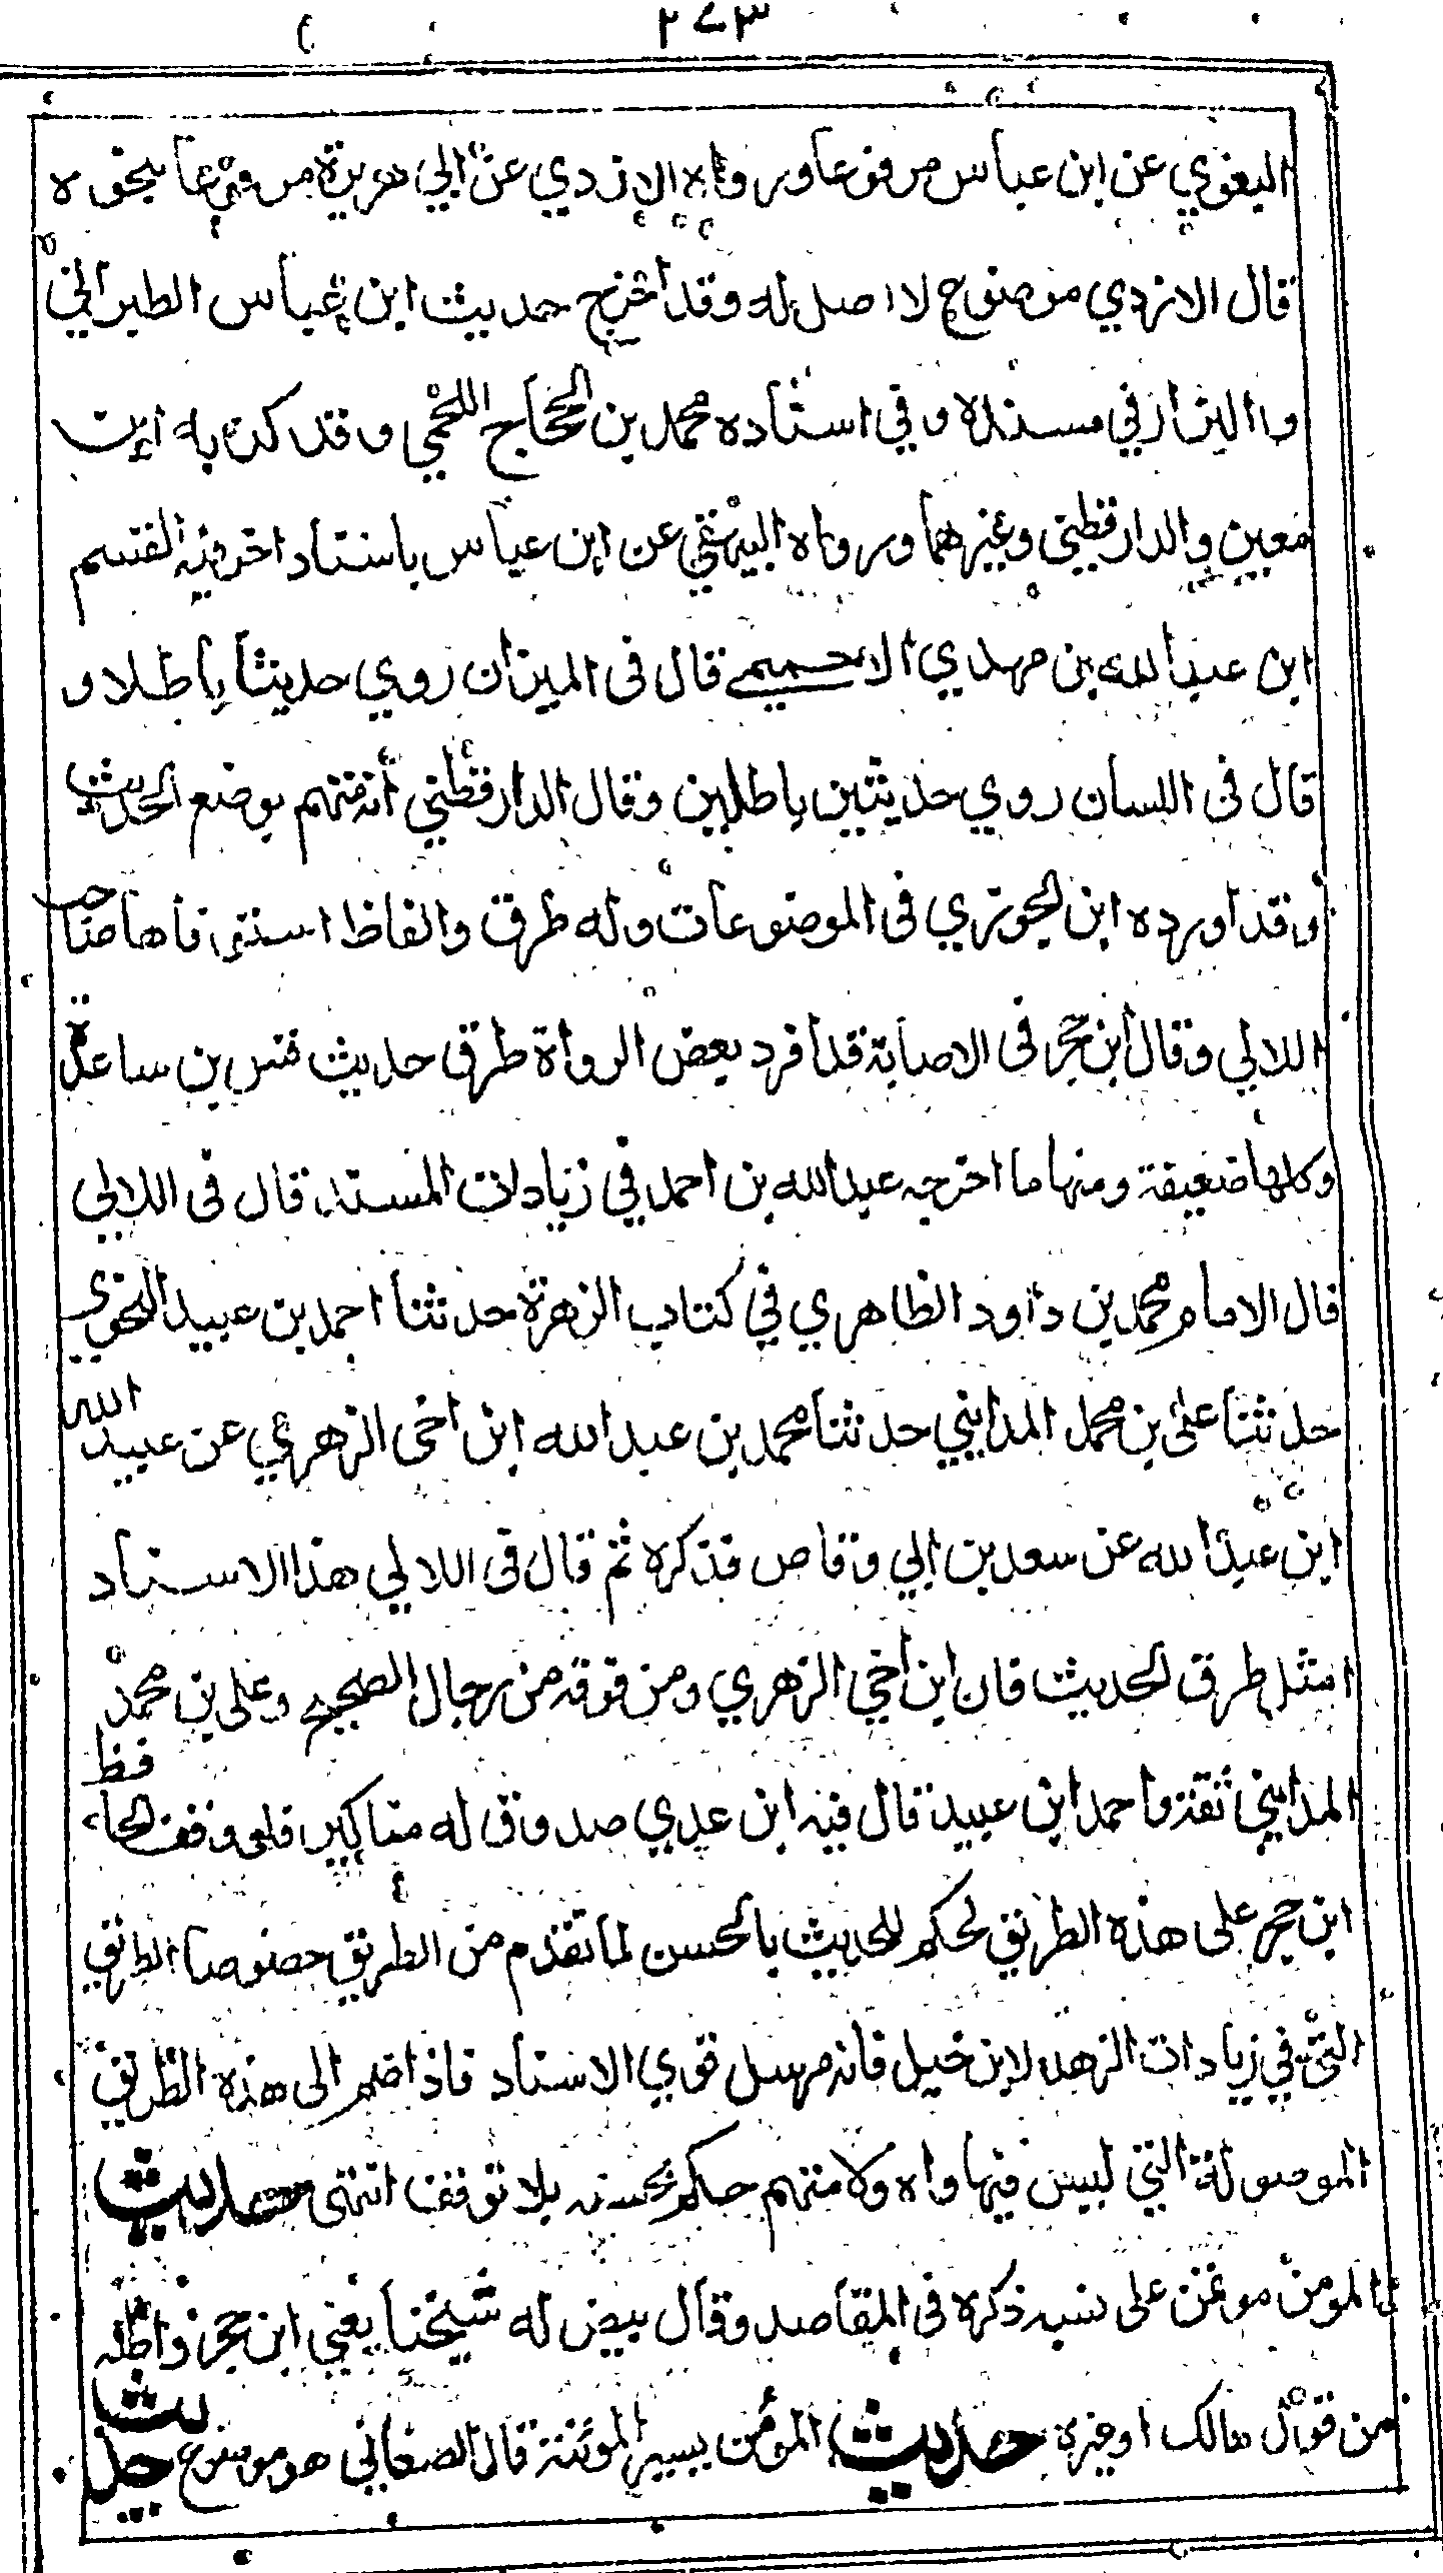 ٢٧٣
البغوي عن ابن عباس مرفوعا ورواه الازدي عن ابي هريرة مرفوعا بنحوه
قال الازدي موضوع لا اصل له وقد اخرج حديث ابن عباس الطبراني
والبزار في مسنده وفي اسناده محمد بن الحجاج اللخمي وقد كذبه ابن
معين والدارقطني وغيرهما ورواه البيهقي عن ابن عباس باسناد اخر فيه القسم
ابن عبد الله بن مهدي الاخميمي قال في الميزان روي حديثا باطلا و
قال في اللسان روي حديثين باطلين وقال الدارقطني انه متهم بوضع الحديث
وقد اورده ابن الجوزي في الموضوعات وله طرق والفاظ استوفاها صاحب
اللالي وقال ابن حجر في الاصابة قد افرد بعض الرواة طرق حديث قس بن ساعدة
وكلها ضعيفة ومنها ما اخرجه عبد الله بن احمد في زيادات المسند قال في اللالي
قال الامام محمد بن داود الظاهري في كتاب الزهرة حدثنا احمد بن عبيد النحوي
حدثنا علي بن محمد المدايني حدثنا محمد بن عبد الله ابن اخي الزهري عن عبيد الله
ابن عبد الله عن سعد بن ابي وقاص فذكره ثم قال في اللالي هذا الاسناد
امثل طرق الحديث فان ابن اخي الزهري ومن فوقه من رجال الصحيح وعلي بن محمد
المدايني ثقة واحمد ابن عبيد قال فيه ابن عدي صدوق له مناكير فلو وقف الحافظ
ابن حجر على هذه الطريق لحكم للحديث بالحسن لما تقدم من الطريق خصوصا الطريق
التي في زيادات الزهد لابن حنبل فانه مرسل قوي الاسناد فاذا ضم الى هذه الطريق
الموصولة التي ليس فيها واه ولا متهم حكم بحسنه بلا توقف انتهى حديث
المومن موتمن على نسبه ذكره في المقاصد وقال بيض له شيخنا يعني ابن حجر واظنه
من قول مالك او غيره حديث المؤمن يسير المؤنة قال الصغاني هو موضوع حديث